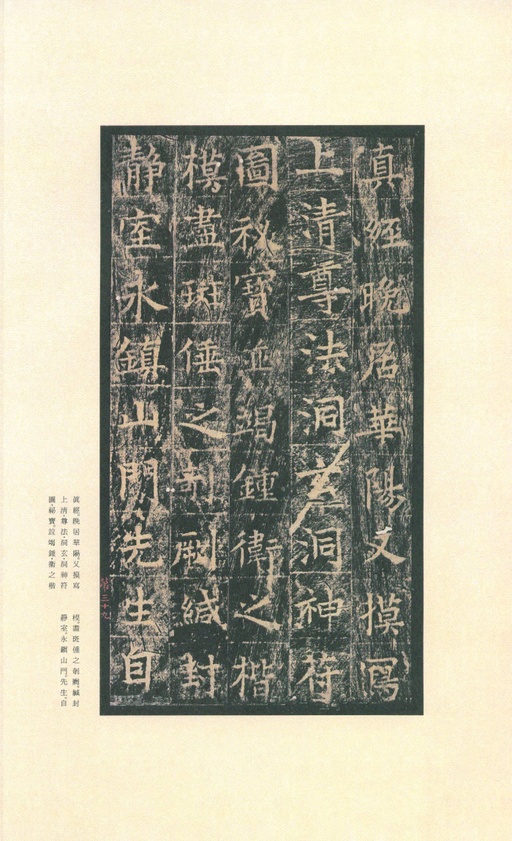 真經晩居華陽又摸寫
上清尊法洞玄洞神符
圖祕寶並竭鍾衛之楷
模盡斑倕之剞劂緘封
靜室永鎮山門先生自
第三十九
眞經。晩居華陽。又摸寫
上淸・尊法・洞玄・洞神符
圖・祕寶。並竭鍾・衞之楷
模。盡斑倕之剞劂。緘封
靜室。永鎭山門。先生自